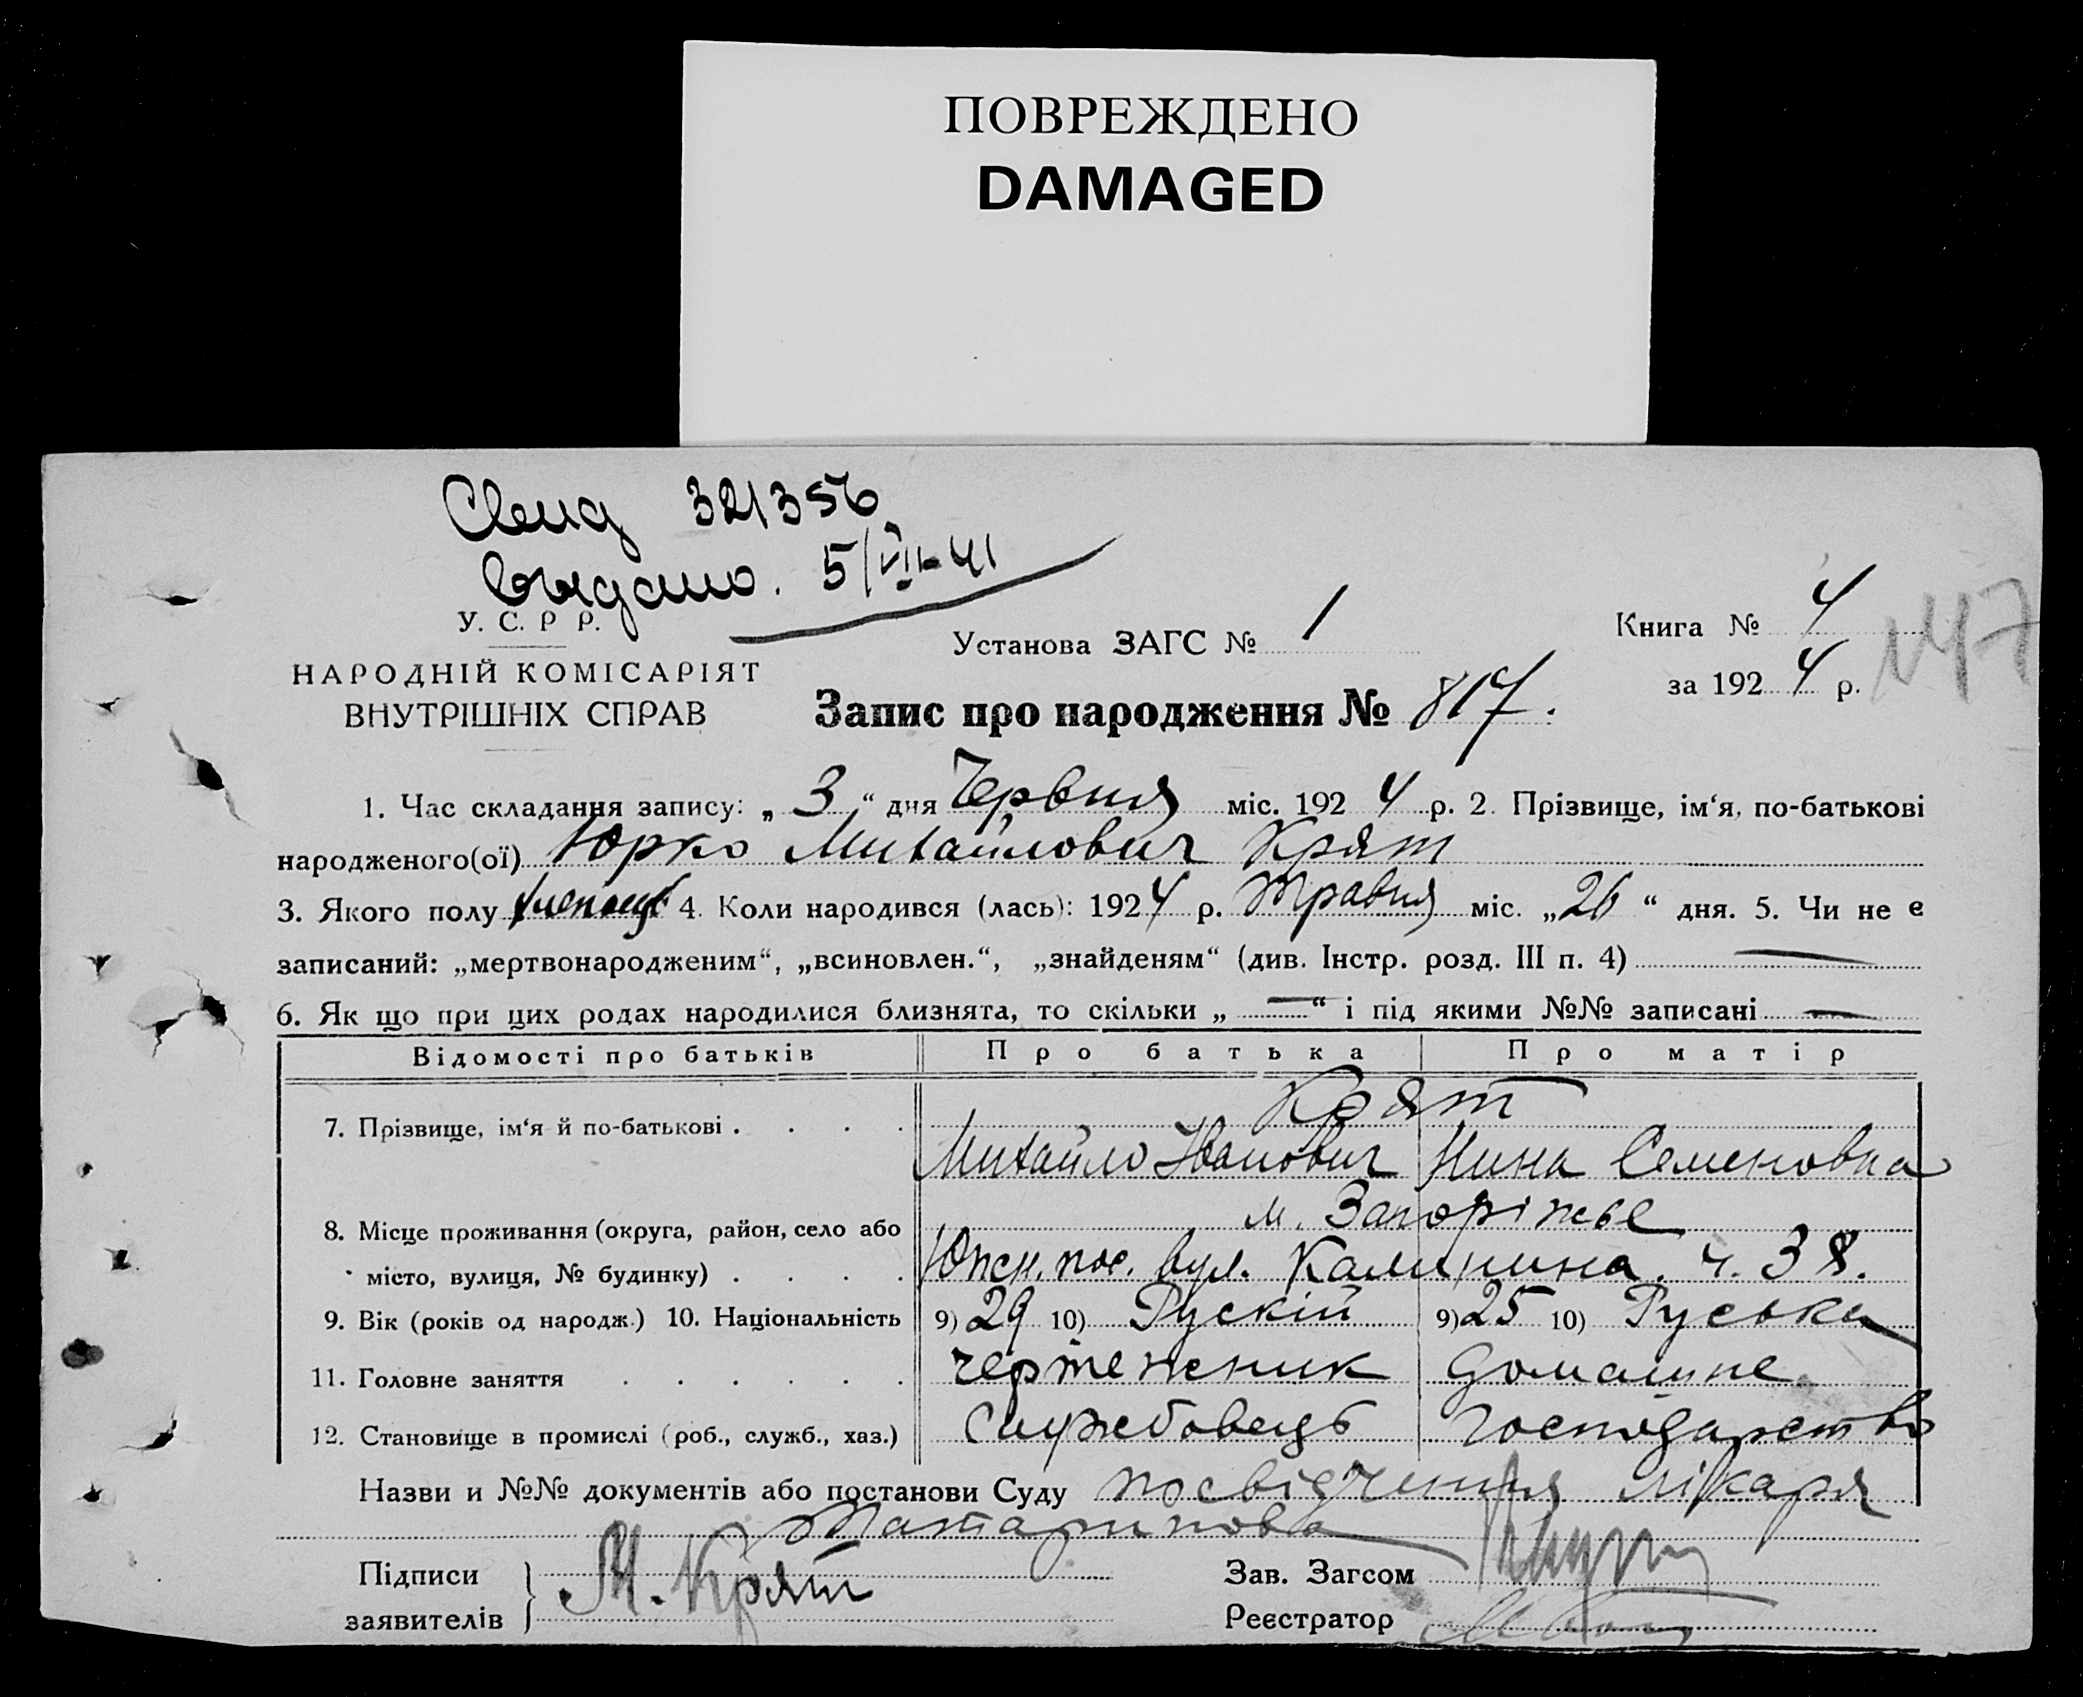 ПОВРЕЖДЕНО
DAMAGED
Свид 321356
выдано. 5/VII-41
У. С. Р Р.
НАРОДНІЙ КОМІСАРІЯТ
ВНУТРІШНІХ СПРАВ
Установа ЗАГС № 1
Книга № 4
за 192 4 р.
Запис про народження № 817.
1. Час складання запису: „ 3 “ дня Червня міс. 192 4 р. 2. Прізвище, ім‘я, по-батькові
народженого(ої) Юрко Михайлович Крят
3. Якого полу 4. Коли народився (лась): 1924 р. Травня міс. „26 “ дня. 5. Чи не є
записаний: „мертвонародженим“, „всиновлен.“, „знайденям“ (див. Інстр. розд. III п. 4) —
6. Як що при цих родах народилися близнята, то скільки „ — “ і під якими №№ записані —
Відомості про батьків Про батька Про матір
Крят
7. Прізвище, ім‘я й по-батькові . . . . Михайло Іванович Нина Семеновна
м. Запоріжье
8. Місце проживання (округа, район, село або
місто, вулиця, № будинку) . . . . Южн. пос. вул. Калинина. ч. 38.
9. Вік (років од народж.) 10. Національність 9) 29 10) Рускій 9) 25 10) Руська
11. Головне заняття . . . . . . чертежник домашне
12. Становище в промислі (роб., служб., хаз.) Службовець господарство
Назви и №№ документів або постанови Суду посвідчення лікаря
Татаринова
Підписи
заявителів М. Крят
Зав. Загсом
Реєстратор